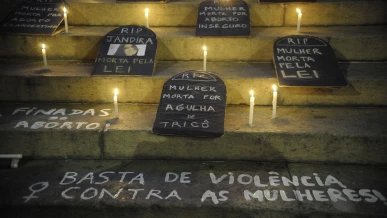 MULHER MORTA POR
ABORTO
INSEGURO
RIP
JANDIRA
MORTA PELA
LEI
RIP
MULHER
MORTA PELA
LEI
RIP
MULHER
MORTA POR
AGULHA
DE
TRICÔ
FINADAS
DO
ABORTO!
BASTA DE VIOLÊNCIA
♀ CONTRA AS MULHERES!